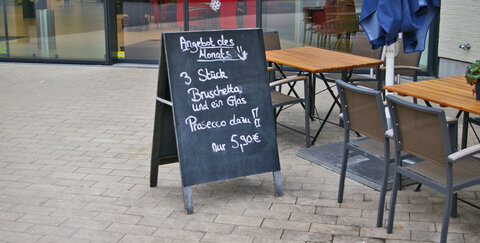 Angebot des
Monats !!
3 Stück
Bruschetta
und ein Glas
Prosecco dazu !!
nur 5,90€